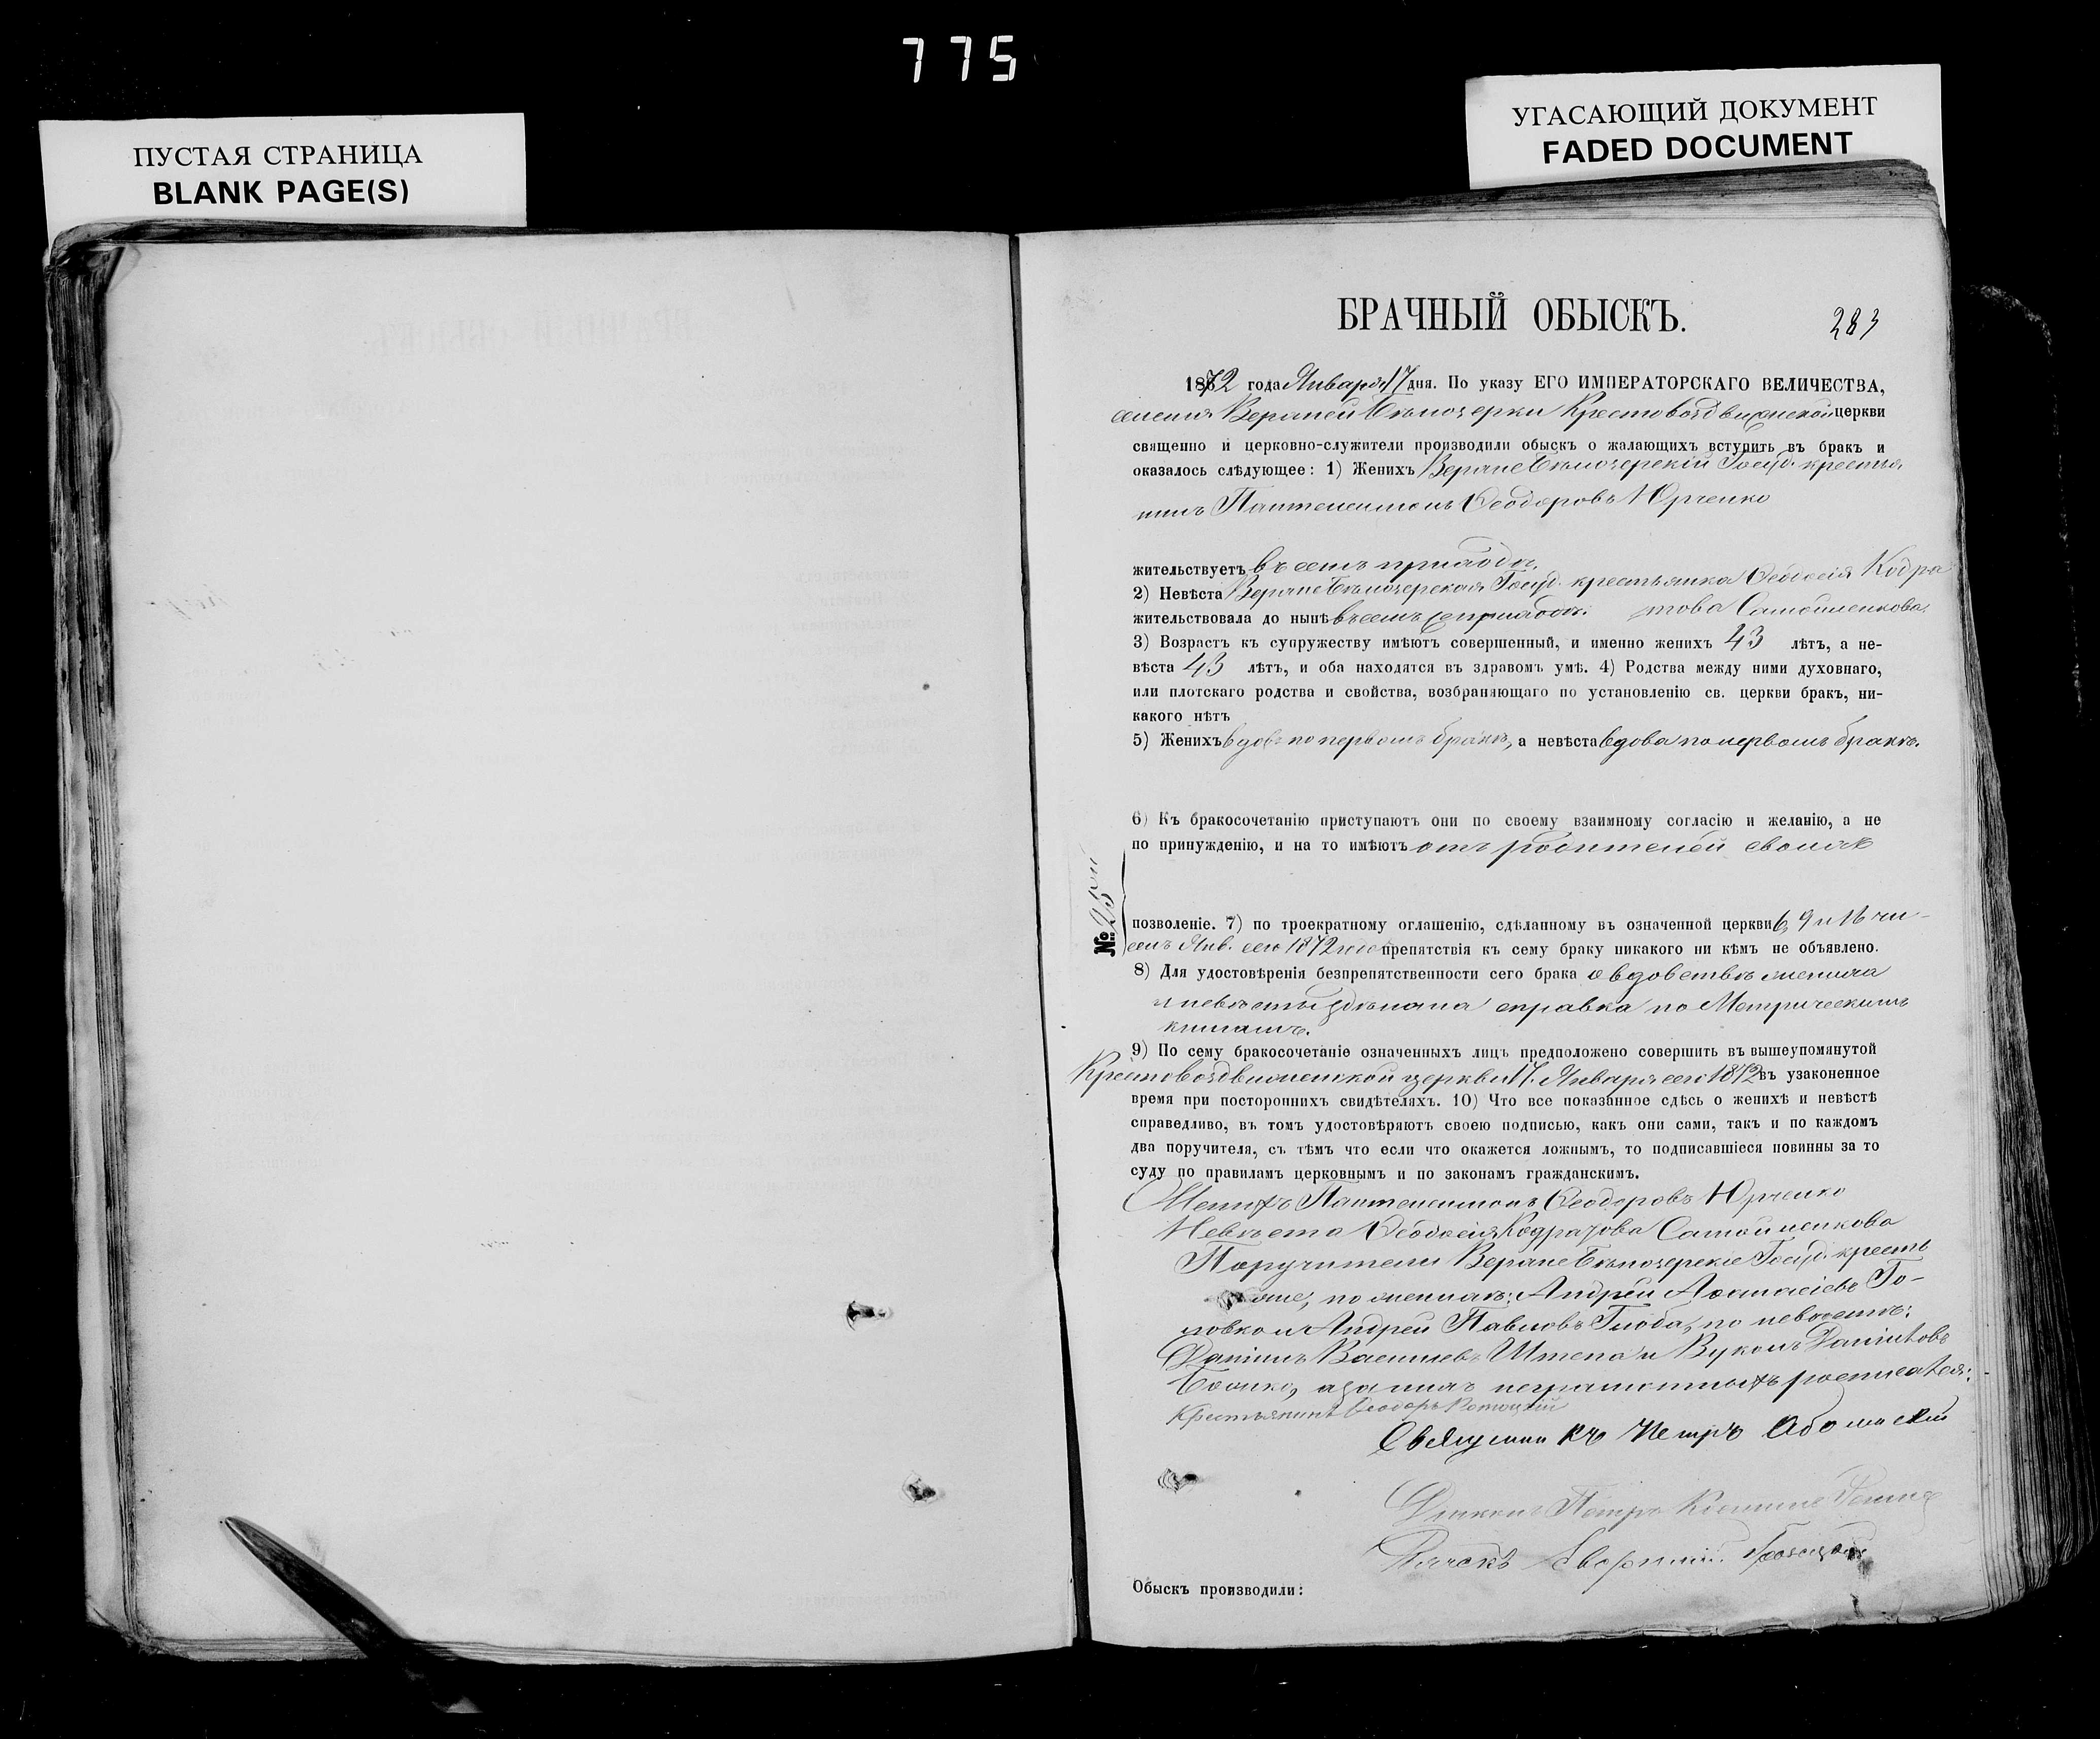 775
ПУСТАЯ СТРАНИЦА
BLANK PAGE(S)
УГАСАЮЩИЙ ДОКУМЕНТ
FADED DOCUMENT
БРАЧНЫЙ ОБЫСКЪ.
283
1872 года Января 17 дня. По указу ЕГО ИМПЕРАТОРСКАГО ВЕЛИЧЕСТВА,
Крестовоздвиженской церкви
священно и церковно-служители производили обыскъ о жалающихъ вступить въ бракъ и
оказалось слѣдующее: 1) Женихъ Верхнебѣлозерскій Госуд. крестья
нинъ Пантелеимонъ Ѳеодоровъ Юрченко
жительствуетъ въ семъ приходѣ.
2) Невѣста Верхнебѣлозерская Госуд. крестьянка Ѳеодосія Кодра
жительствовала до нынѣ въ семъ приходѣ. това Самойленкова
3) Возрастъ къ супружеству имѣютъ совершенный, и именно женихъ 43 лѣтъ, а не-
вѣста 43 лѣтъ, и оба находятся въ здравомъ умѣ. 4) Родства между ними духовнаго,
или плотскаго родства и свойства, возбраняющаго по установленію св. церкви бракъ, ни-
какого нѣтъ
5) Женихъ вдовъ по первомъ бракѣ, а невѣста вдова по первомъ бракѣ.
6) Къ бракосочетанію приступаютъ они по своему взаимному согласію и желанію, а не
по принужденію, и на то имѣютъ отъ родителей своихъ
№ 25
позволеніе. 7) по троекратному оглашенію, сдѣланному въ означенной церкви 6, 9 и 16 чи-
селъ Янв. сего 1872 года препятствія къ сему браку никакого ни кѣмъ не объявлено.
8) Для удостовѣренія безпрепятственности сего брака о вдовствѣ жениха
и невѣсты сдѣлана справка по Метрическимъ
книгамъ.
9) По сему бракосочетаніе означенныхъ лицъ предположено совершить въ вышеупомянутой
Крестовоздвиженской церкви 17. Января сего 1872 въ узаконенное
время при постороннихъ свидѣтеляхъ. 10) Что все показанное сдѣсь о женихѣ и невѣстѣ
справедливо, въ томъ удостовѣряютъ своею подписью, какъ они сами, такъ и по каждомъ
два поручителя, съ тѣмъ что если что окажется ложнымъ, то подписавшіеся повинны за то
суду по правиламъ церковнымъ и по законамъ гражданскимъ.
Женихъ Пантелеимонъ Ѳеодоровъ Юрченко
Невѣста Ѳеодосія Кодратова Самойленкова
Поручители Верхнебѣлозерскіе Госуд. кресть
яне, по женихѣ: Андрей Аѳанасіевъ Го-
ловко и Андрей Павловъ Глоба, по невѣстѣ:
Даніилъ Василіевъ Штепа и Вуколъ Даніиловъ
Бойко, а за нихъ неграмотныхъ росписался:
Крестьянинъ Ѳеодоръ
Священникъ Петръ
Петръ
Дячекъ
Обыскъ производили: